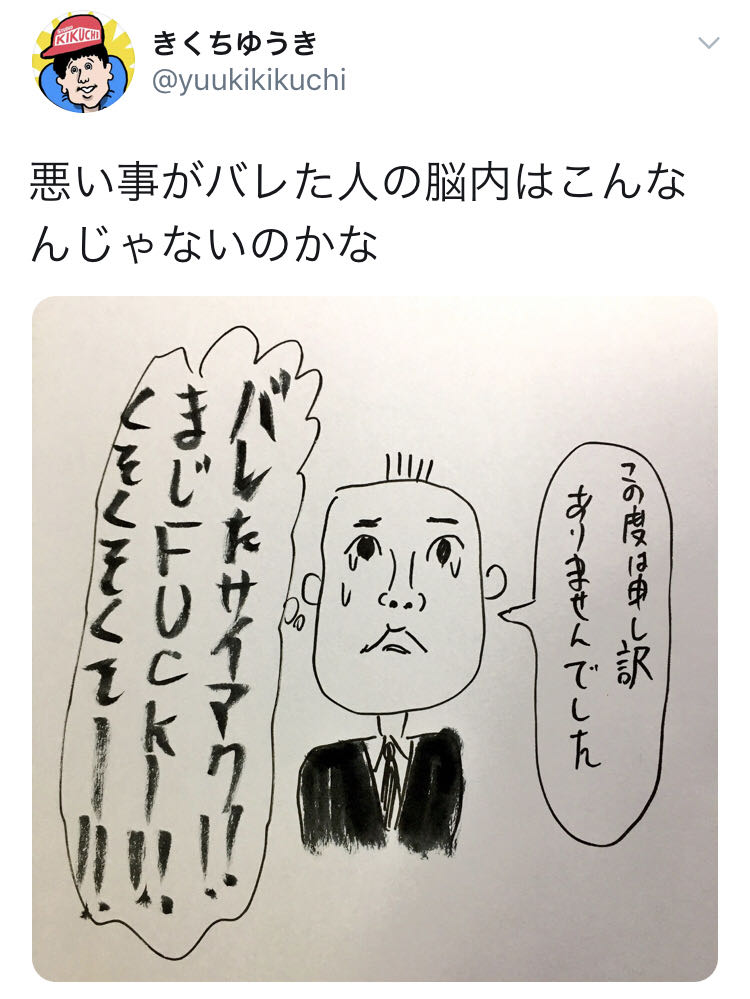 KIKUCHI
きくちゆうき
@yuukikikuchi
悪い事がバレた人の脳内はこんな
んじゃないのかな
この度は申し訳
ありませんでした
バレたサイアク!!
まじFUCKー!!
くそくそくそー!!